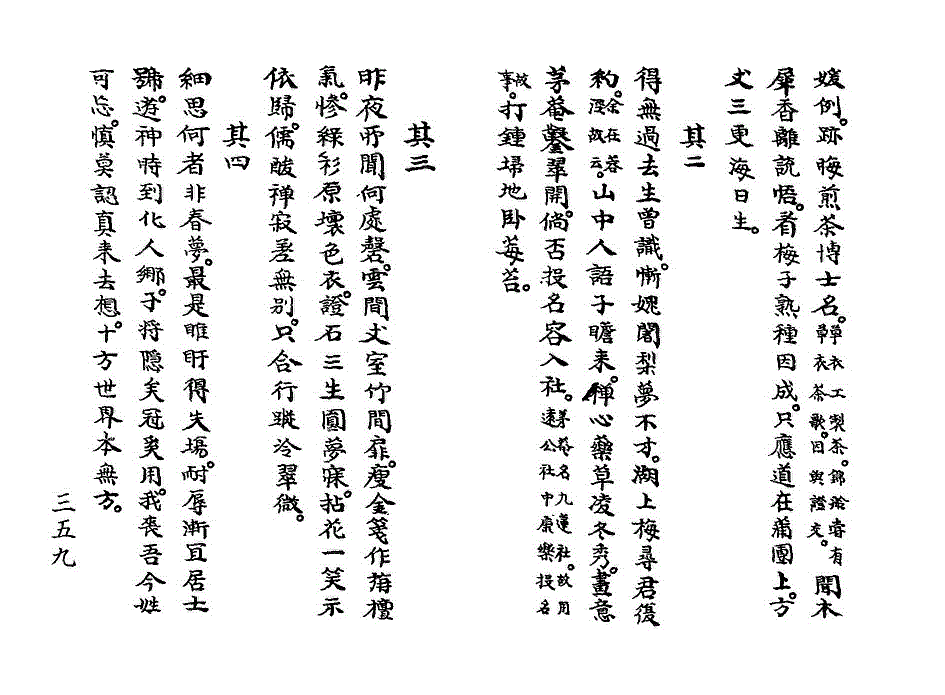 媛例。跡晦煎茶博士名。單衣工製茶。錦滄嘗有單衣茶歌。因與證交。聞木
犀香離説悟。看梅子熟種因成。只應道在蒲團上。方
丈三更海日生。
其二
得無過去生曾識。慚媿闍梨夢不才。湖上梅尋君復
約。余在蓉澄故云。山中人語子瞻來。禪心藥草凌冬秀。畫意
茅菴鑿翠開。倘否投名容入社。茅菴名九蓮社。故用遠公社中康樂投名
故事。打鍾埽地臥莓苔。
其三
昨夜所聞何處磬。雲間丈室竹間扉。瘦金箋作旃檀
氣。慘綠衫原壞色衣。證石三生圓夢寐。拈花一笑示
依歸。儒酸禪寂差無別。只合行蹤冷翠微。
其四
細思何者非春夢。最是睢盱得失場。耐辱漸宜居士
號。遊神時到化人鄉。子將隱矣冠奚用。我喪吾今姓
可忘。慎莫認真來去想。十方世界本無方。
三五九